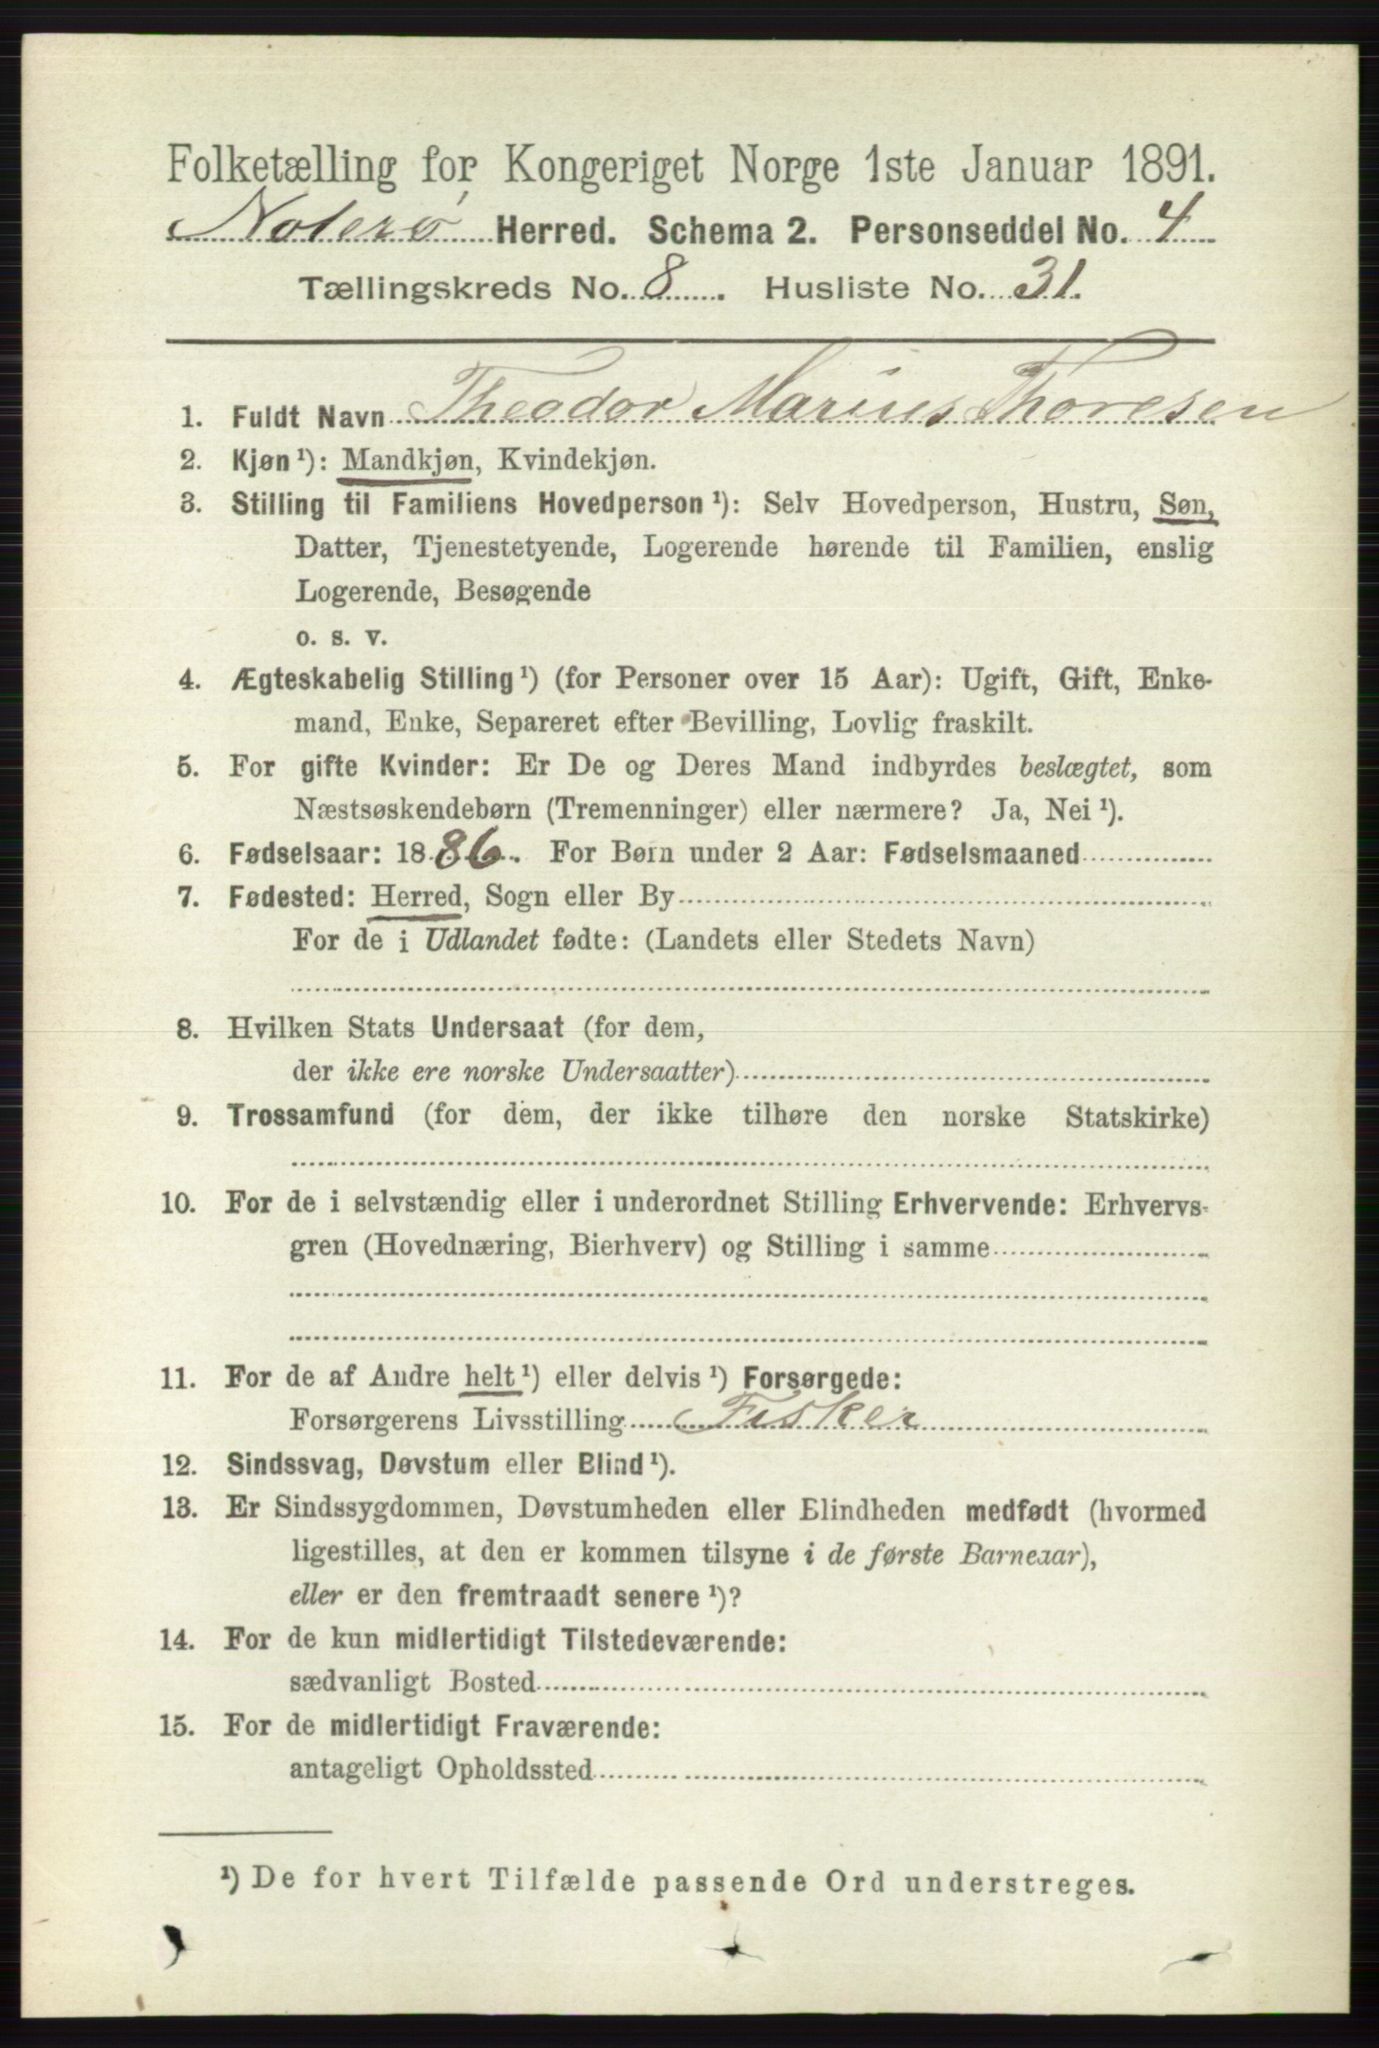 Folketælling for Kongeriget Norge 1ste Januar 1891.
Noterø Herred. Schema 2. Personseddel No. 4
Tællingskreds No. 8. Husliste No. 31.
1. Fuldt Navn Theodor Marius Thoresen
2. Kjøn¹): Mandkjøn, Kvindekjøn.
3. Stilling til Familiens Hovedperson¹): Selv Hovedperson, Hustru, Søn,
Datter, Tjenestetyende, Logerende hørende til Familien, enslig
Logerende, Besøgende
o. s. v.
4. Ægteskabelig Stilling¹) (for Personer over 15 Aar): Ugift, Gift, Enke-
mand, Enke, Separeret efter Bevilling, Lovlig fraskilt.
5. For gifte Kvinder: Er De og Deres Mand indbyrdes beslægtet, som
Næstsøskendebørn (Tremenninger) eller nærmere? Ja, Nei¹).
6. Fødselsaar: 1886. For Børn under 2 Aar: Fødselsmaaned
7. Fødested: Herred, Sogn eller By
For de i Udlandet fødte: (Landets eller Stedets Navn)
8. Hvilken Stats Undersaat (for dem,
der ikke ere norske Undersaatter)
9. Trossamfund (for dem, der ikke tilhøre den norske Statskirke)
10. For de i selvstændig eller i underordnet Stilling Erhvervende: Erhvervs-
gren (Hovednæring, Bierhverv) og Stilling i samme
11. For de af Andre helt¹) eller delvis¹) Forsørgede:
Forsørgerens Livsstilling Fisker
12. Sindssvag, Døvstum eller Blind¹).
13. Er Sindssygdommen, Døvstumheden eller Blindheden medfødt (hvormed
ligestilles, at den er kommen tilsyne i de første Barneaar),
eller er den fremtraadt senere¹)?
14. For de kun midlertidigt Tilstedeværende:
sædvanligt Bosted
15. For de midlertidigt Fraværende:
antageligt Opholdssted
¹) De for hvert Tilfælde passende Ord understreges.